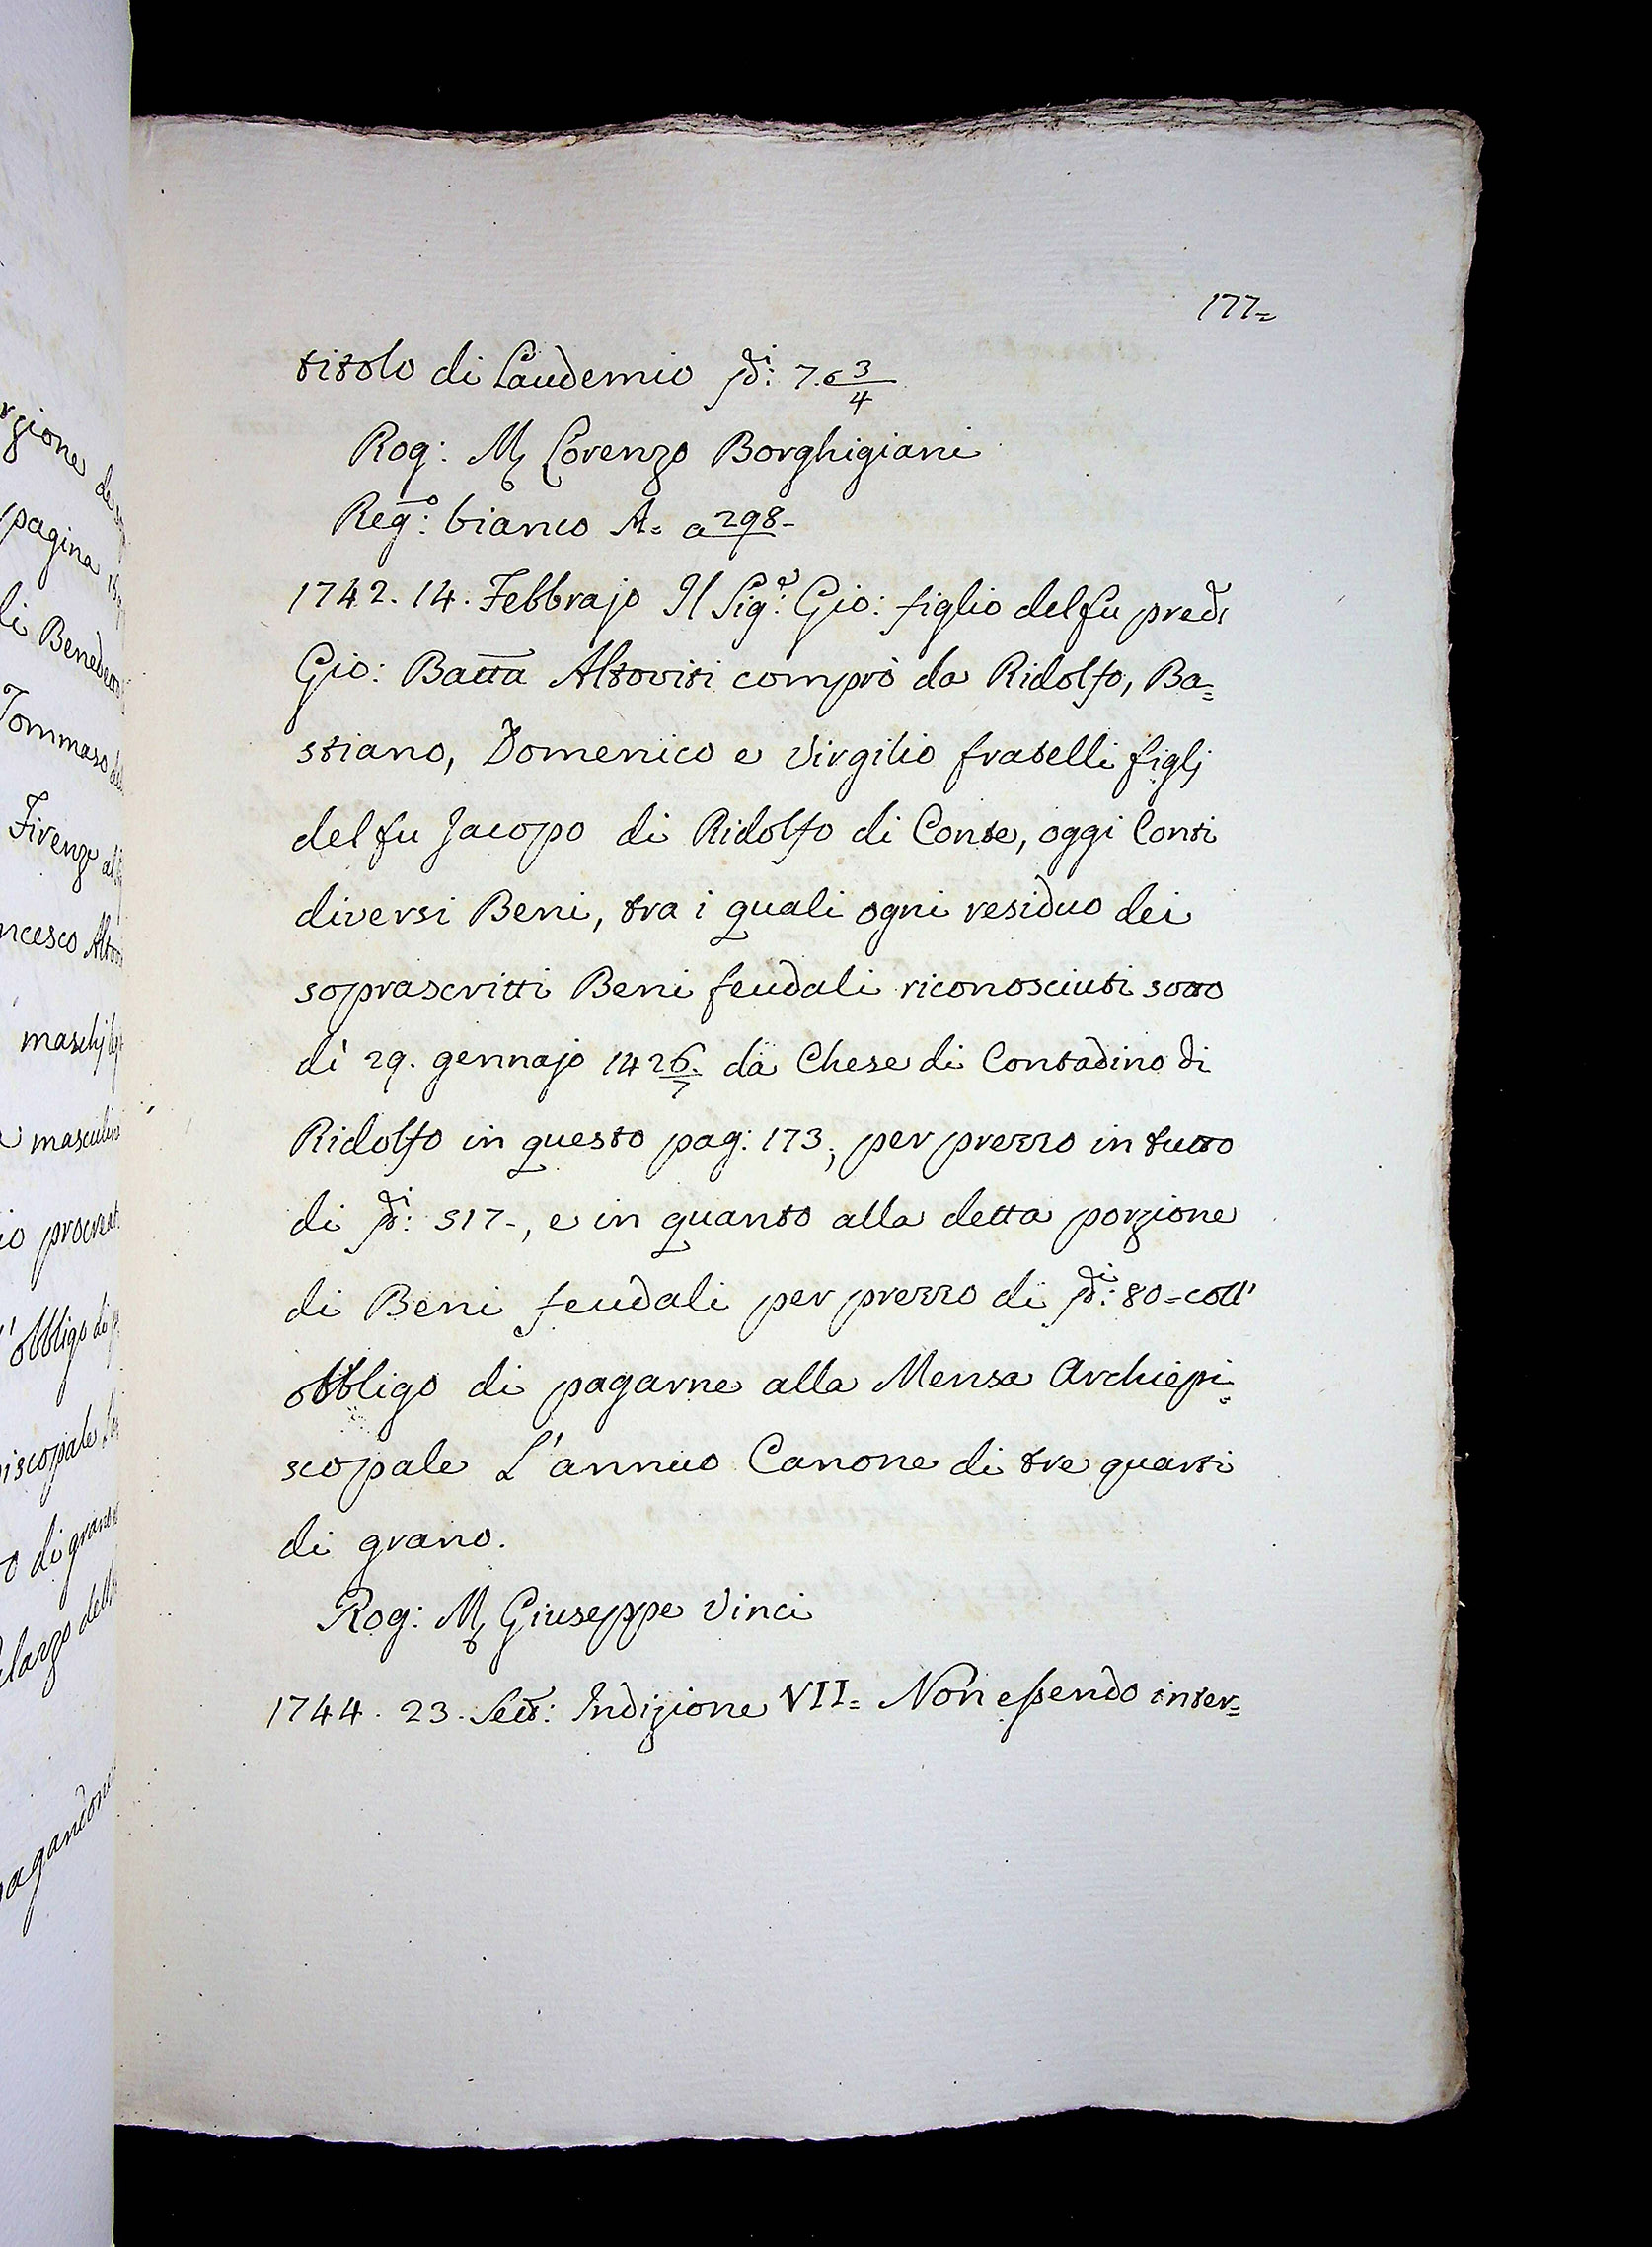 177=
titolo di Laudemio di: 7.6 3/4
Rog: M Lorenzo Borghigiani
Reg.o: bianco A= a 298-
1742. 14. Febbrajo Il Sig.r: Gio: figlio del fu pred:
Gio: Batta Altoviti comprò da Ridolfo, Ba=
stiano, Domenico e Virgilio fratelli figlj
del fu Jacopo di Ridolfo di Conte, oggi Conti
diversi Beni, tra i quali ogni residuo dei
soprascritti Beni feudali riconosciuti sotto
dì 29. gennajo 1426./7 da Chese di Contadino di
Ridolfo in questo pag: 173; per prezzo in tutto
di di: 517-, e in quanto alla detta porzione
di Beni feudali per prezzo di di: 80= coll'
obbligo di pagarne alla Mensa Archiepi=
scopale L'annuo Canone di tre quarti
di grano.
Rog: M Giuseppe Vinci
1744. 23. Sett: Indizione VII= Non essendo inter=
rgione de
pagina
li Benede
Tommaso del
Firenze al
ncesco Altov
maschj
masculin
io procreat
l'obbligo di
iscopale
o di grano
larzo dell
pagandone